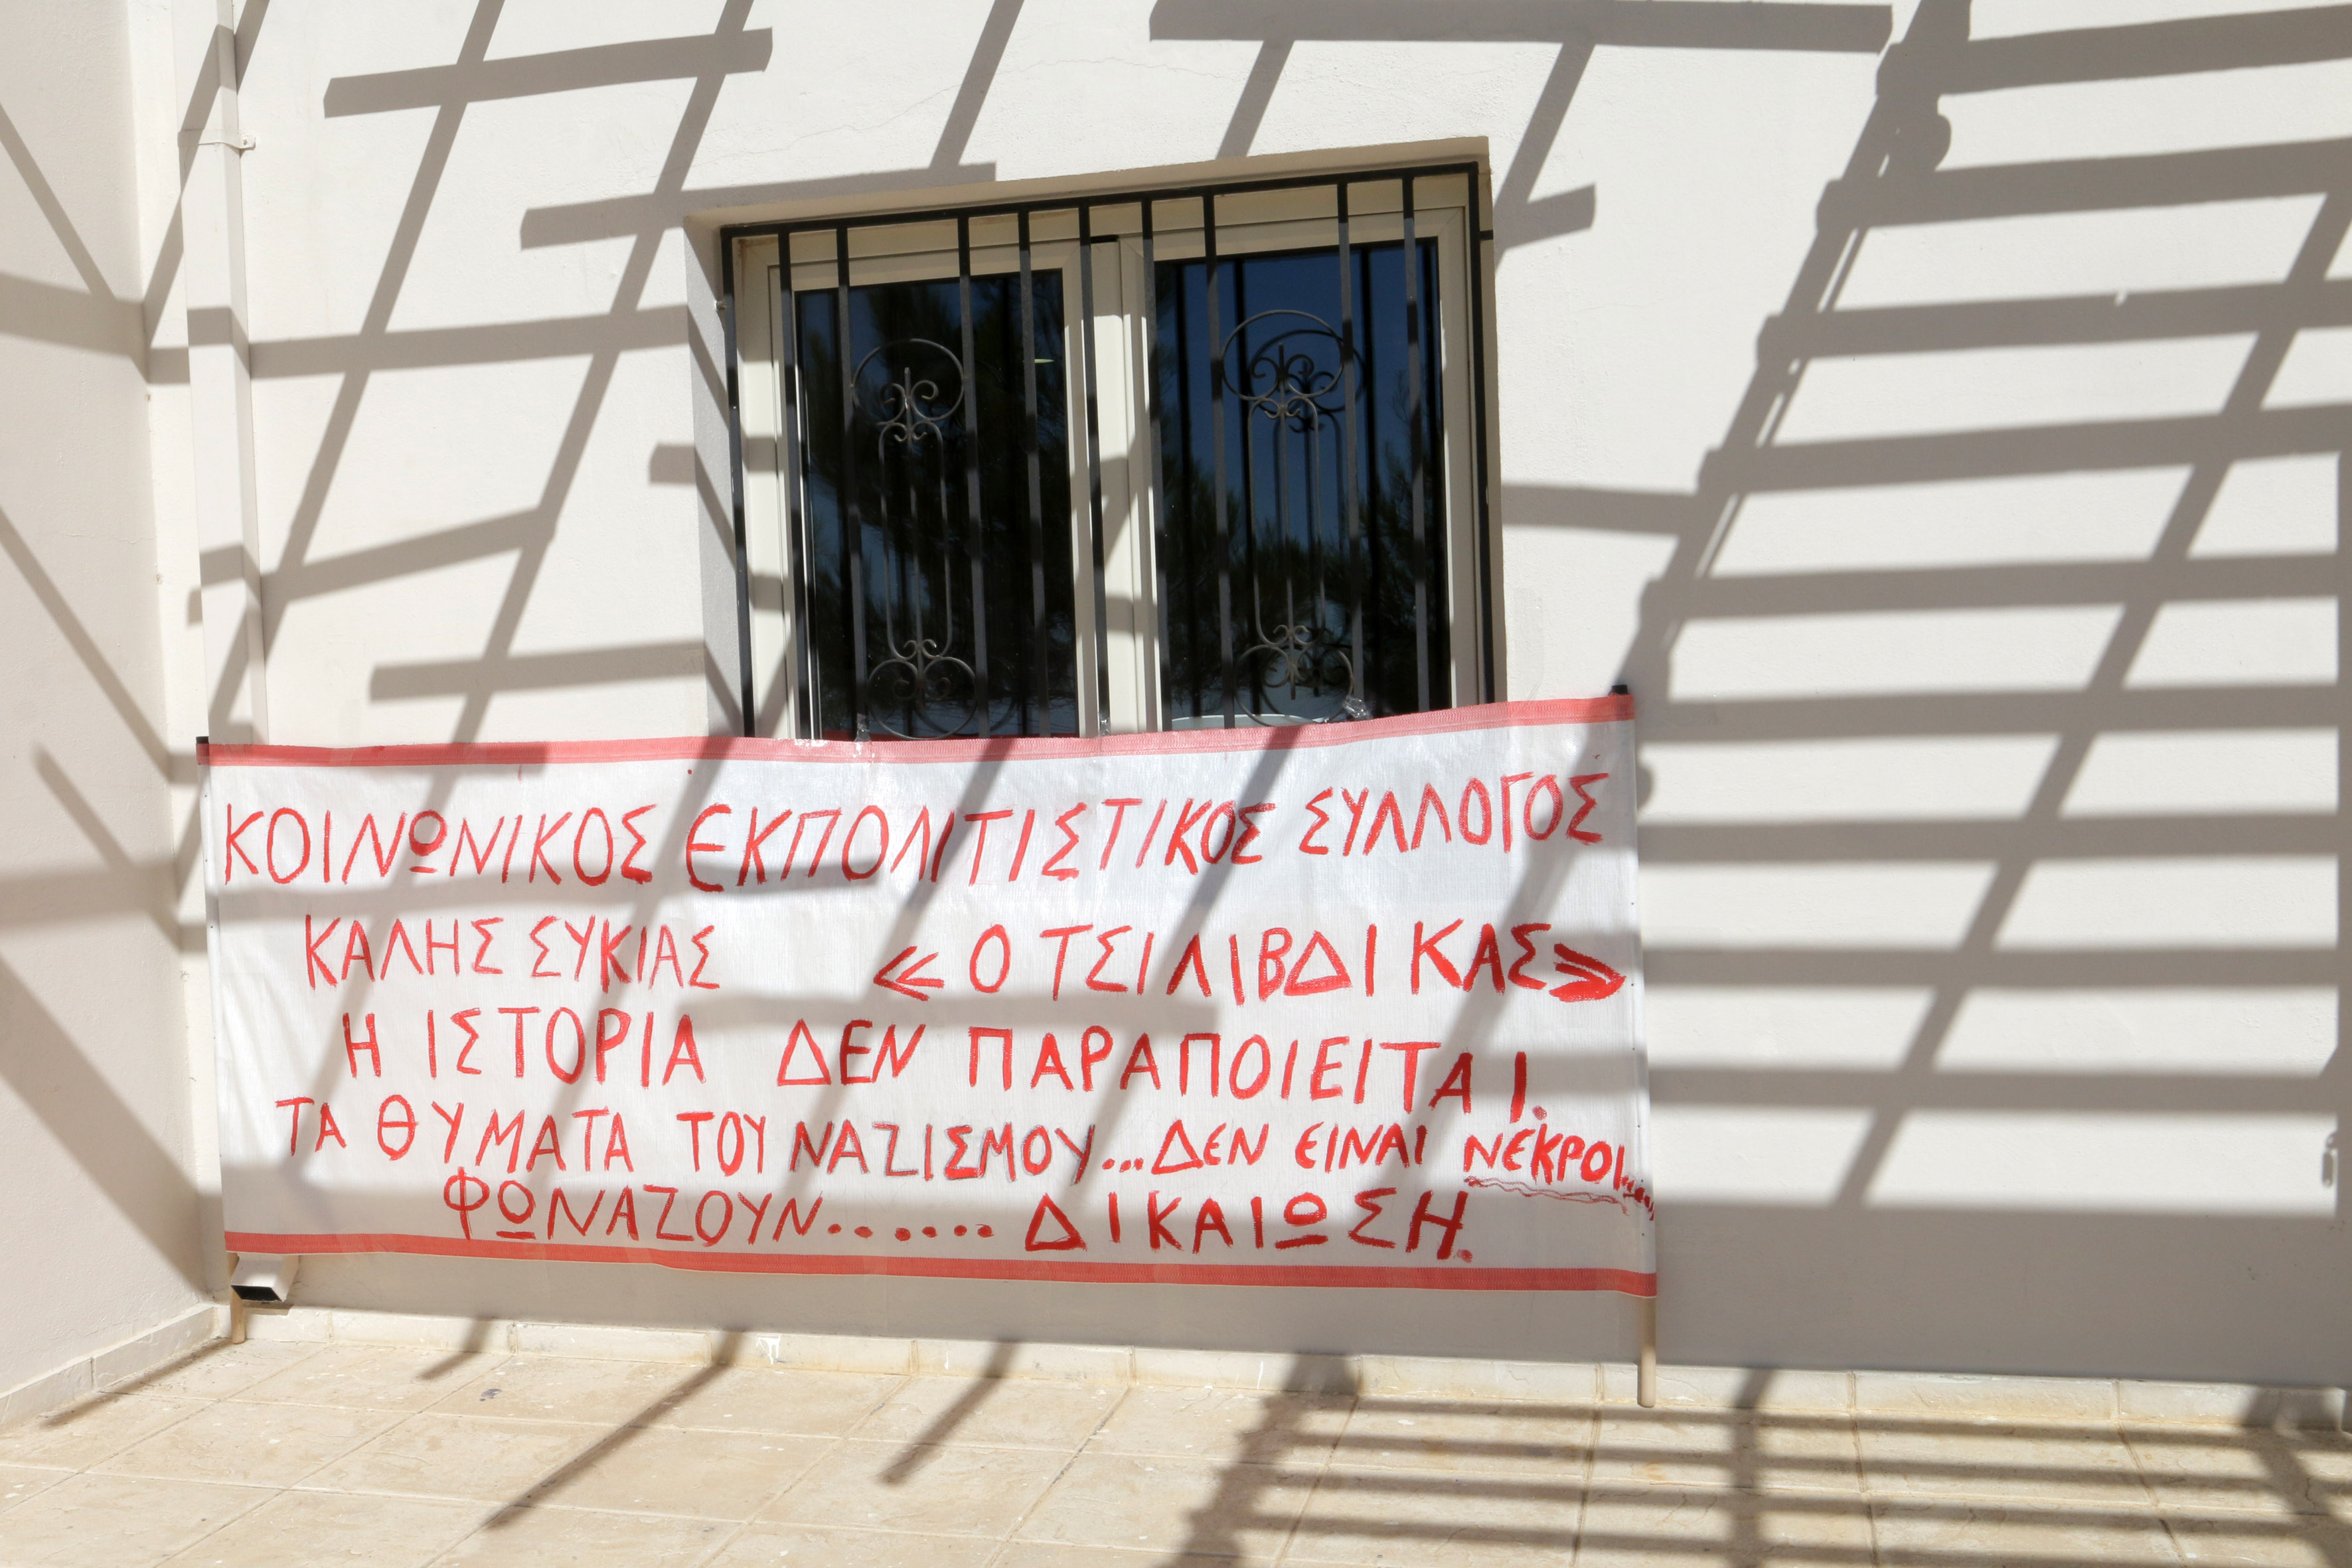 ΚΟΙΝΩΝΙΚΟΣ ΕΚΠΟΛΙΤΙΣΤΙΚΟΣ ΣΥΛΛΟΓΟΣ
ΚΑΛΗΣ ΣΥΚΙΑΣ «Ο ΤΣΙΛΙΒΔΙΚΑΣ»
Η ΙΣΤΟΡΙΑ ΔΕΝ ΠΑΡΑΠΟΙΕΙΤΑΙ.
ΤΑ ΘΥΜΑΤΑ ΤΟΥ ΝΑΖΙΣΜΟΥ...ΔΕΝ ΕΙΝΑΙ ΝΕΚΡΟΙ......
ΦΩΝΑΖΟΥΝ...... ΔΙΚΑΙΩΣΗ.